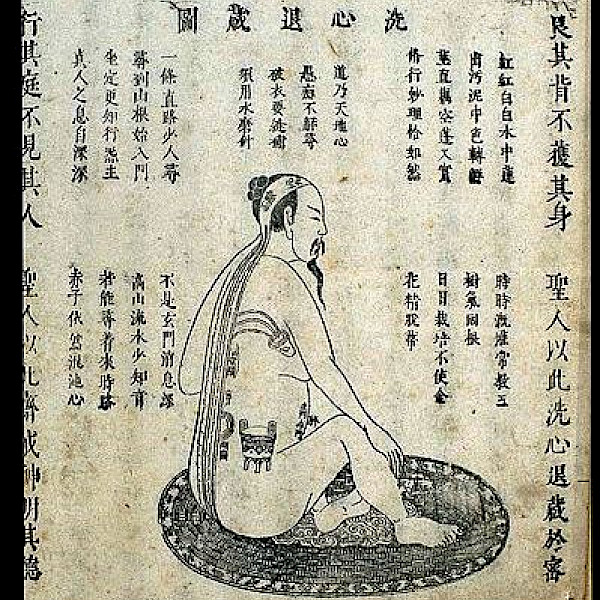 洗心退藏圖
艮其背不獲其身
聖人以此洗心退藏於密
紅紅白白水中蓮
出污泥中色轉鮮
莖直藕空蓬又實
修行妙理恰如然
道乃天地心
愚痴不解尋
破衣要
須用水磨針
一條直路少人尋
尋到山根始入門
坐定更知行炁主
真人之息自深深
時時溉灌常教玉
樹氣固根
日日栽培不使金
花精脫蒂
不是玄門消息深
高山流水少知音
若能尋着來時路
赤子依然混沌心
行其庭不見其人
聖人以此齋戒神明其德